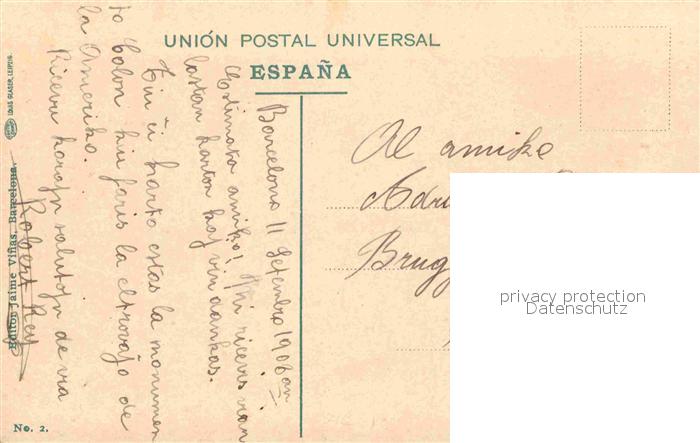 UNIÓN POSTAL UNIVERSAL
ESPAÑA
Barcelono 11 Setembro 1906an
Estimata amiko! Mi ricevis vian
lastan karton kaj vin dankas.
Tiu ĉi karto estas la monumen
to Colon kiu faris la eltrovaĵo de
la Ameriko.
Ricevu korajn salutojn de via
Robert Rey
Al amiko
Adri
Brug
Editor Jaime Viñas, Barcelona.
LOUIS GLASER, LEIPZIG.
No. 2.
privacy protection
Datenschutz